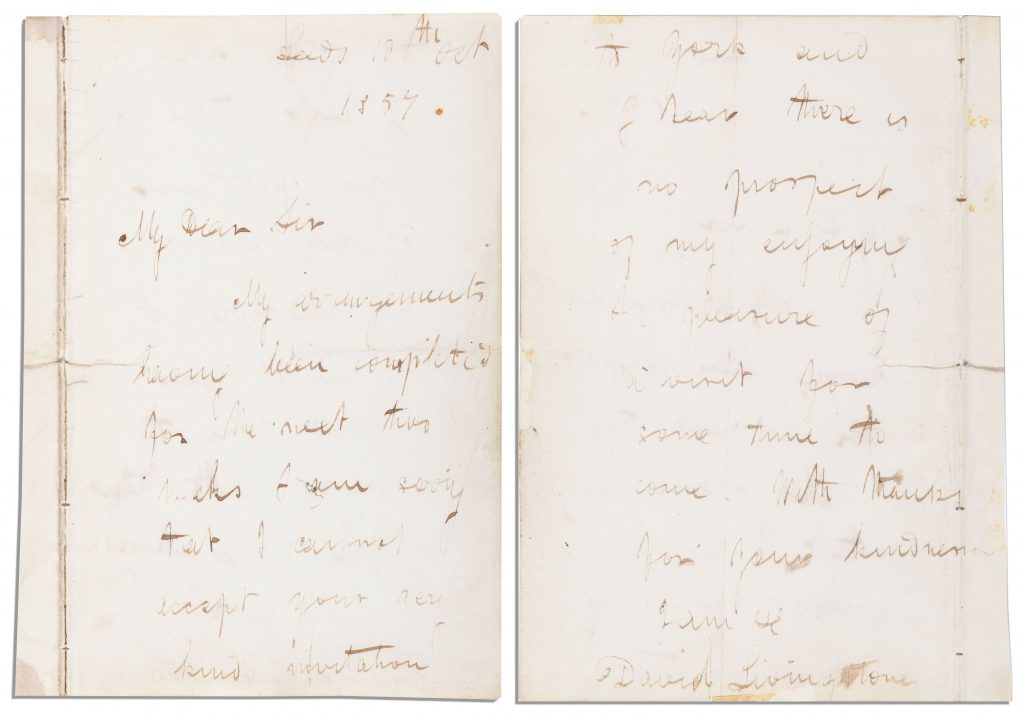 Leeds Oct
1857.
My Dear Sir
My arrangements
having been completed
for the next two
weeks I am sorry
tat I cannot
accept your very
kind invitation
to York and
I hear there is
no prospect
of my enjoying
pleasure of
a visit for
some time to
come. With thanks
for your kindness
I am &c
David Livingstone